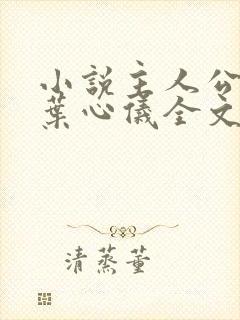 小説主人公
葉心儀全文
清蒸董